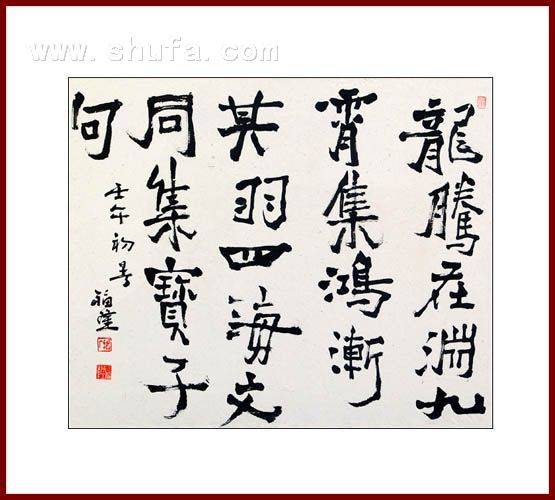 www.shufa.com
龍騰在淵九
霄集鴻漸
其羽四海文
同集寶子
句
壬午初暑